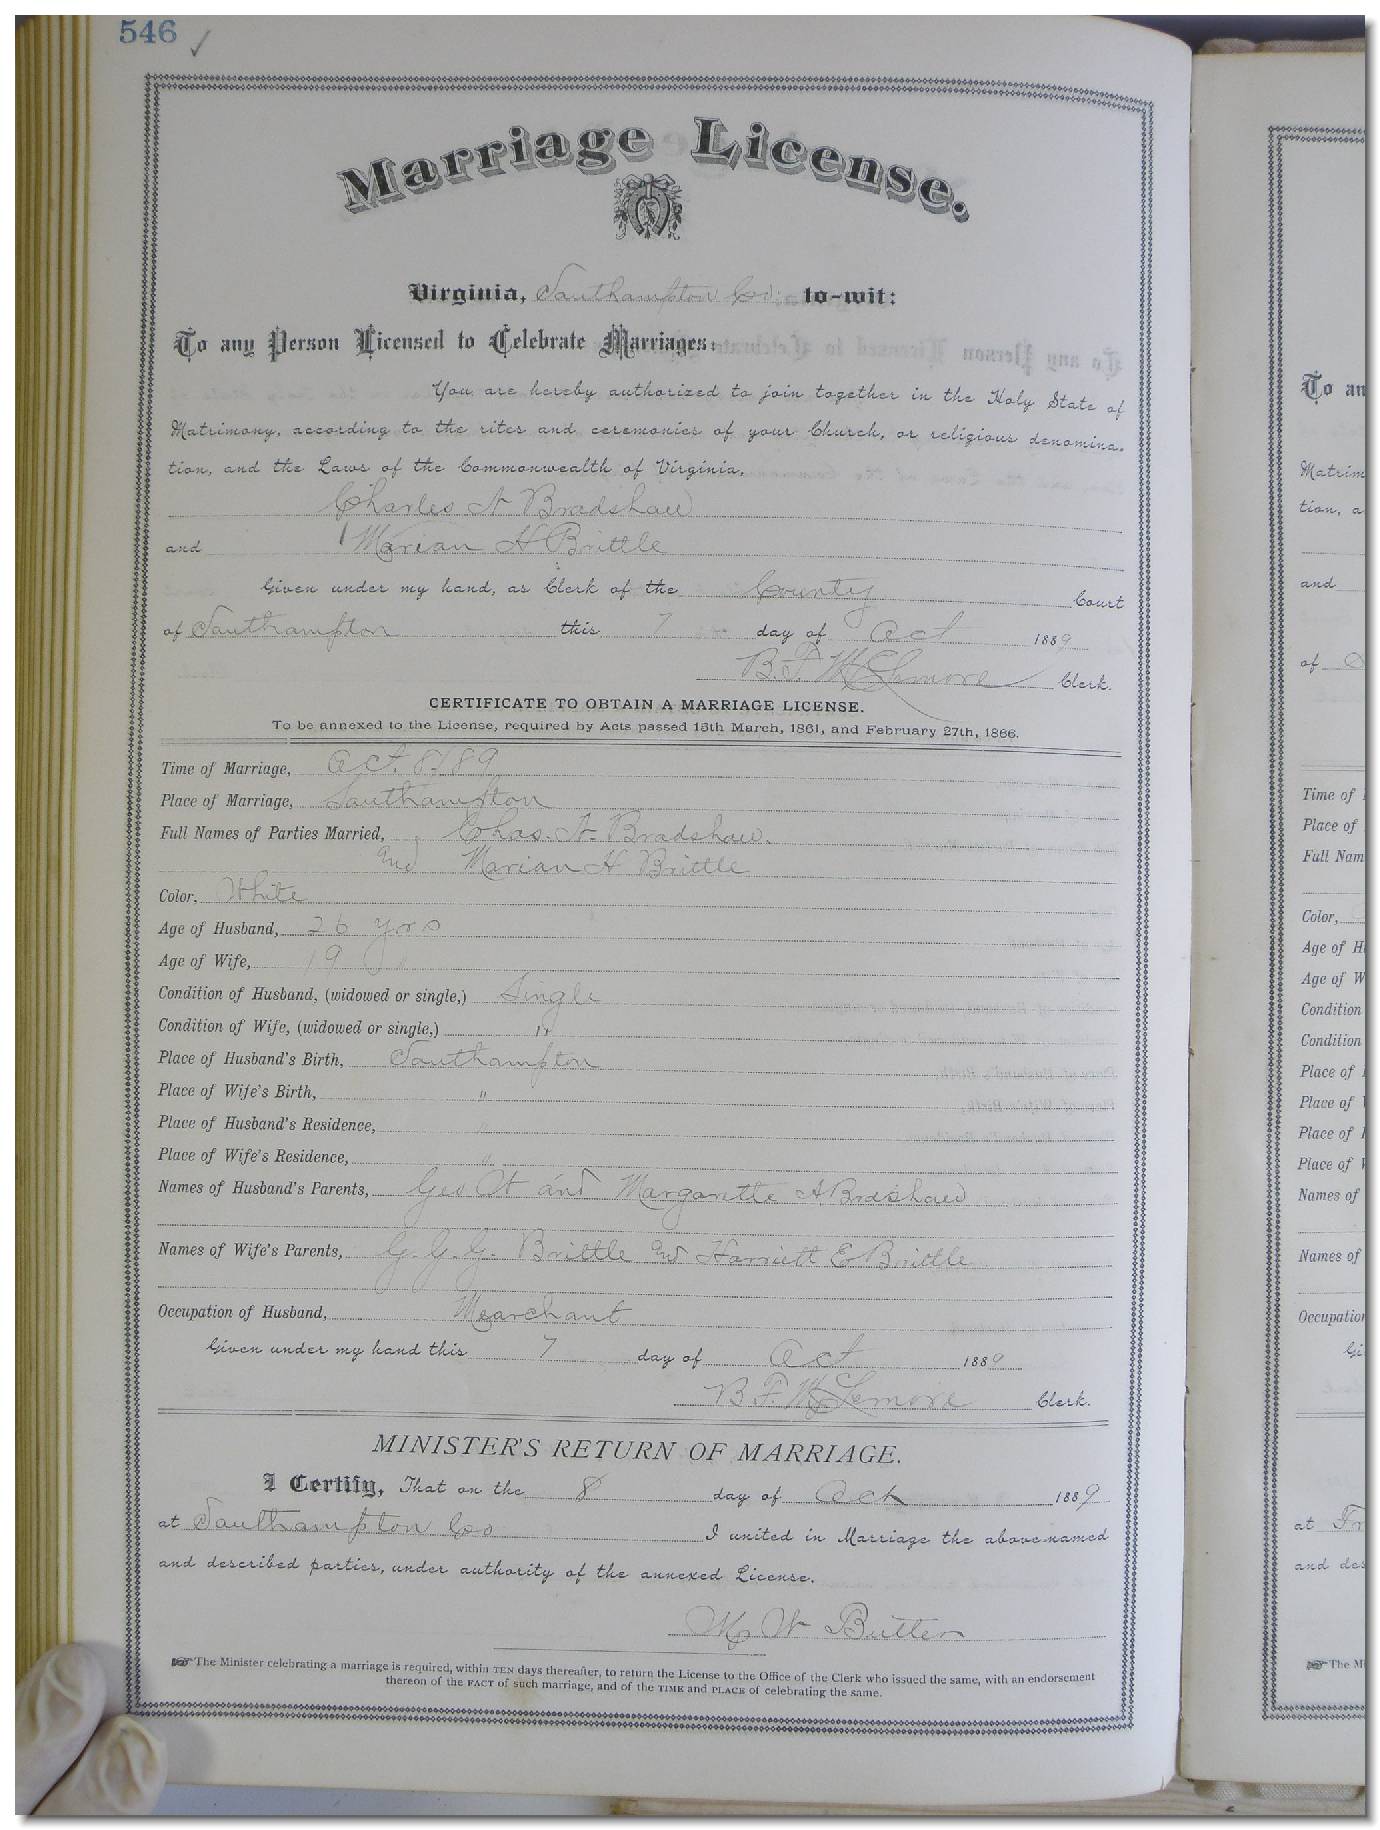 546 ✓
Marriage License.
Virginia, Southampton Co to-wit:
To any Person Licensed to Celebrate Marriages:
You are hereby authorized to join together in the Holy State of
Matrimony, according to the rites and ceremonies of your Church, or religious denomina-
tion, and the Laws of the Commonwealth of Virginia,
Charles A Bradshaw
and Marian H Brittle
Given under my hand, as Clerk of the County Court
of Southampton this 7 day of Oct 1889
B. F. McLemore Clerk.
CERTIFICATE TO OBTAIN A MARRIAGE LICENSE.
To be annexed to the License, required by Acts passed 15th March, 1861, and February 27th, 1866.
Time of Marriage, Oct. 8/89
Place of Marriage, Southampton
Full Names of Parties Married, Chas. A. Bradshaw.
and Marian H Brittle
Color, White
Age of Husband, 26 yrs
Age of Wife, 19 "
Condition of Husband, (widowed or single,) Single
Condition of Wife, (widowed or single,) "
Place of Husband's Birth, Southampton
Place of Wife's Birth, "
Place of Husband's Residence, "
Place of Wife's Residence, "
Names of Husband's Parents, Geo and Margarette A Bradshaw
Names of Wife's Parents, G. G. G. Brittle and Harriett E Brittle
Occupation of Husband, Mearchant
Given under my hand this 7 day of Oct 1889
B F. McLemore Clerk.
MINISTER'S RETURN OF MARRIAGE.
I Certify, That on the 8 day of Oct 1889
at Southampton Co I united in Marriage the above-named
and described parties, under authority of the annexed License.
M W Butler
☞ The Minister celebrating a marriage is required, within TEN days thereafter, to return the License to the Office of the Clerk who issued the same, with an endorsement
thereon of the FACT of such marriage, and of the TIME and PLACE of celebrating the same.
To an
Matrim
tion, a
and
of
Time of
Place of
Full Nam
Color,
Age of H
Age of W
Condition
Condition
Place of
Place of
Place of
Place of
Names of
Names of
Occupation
Gi
at Fr
and des
☞ The Mi